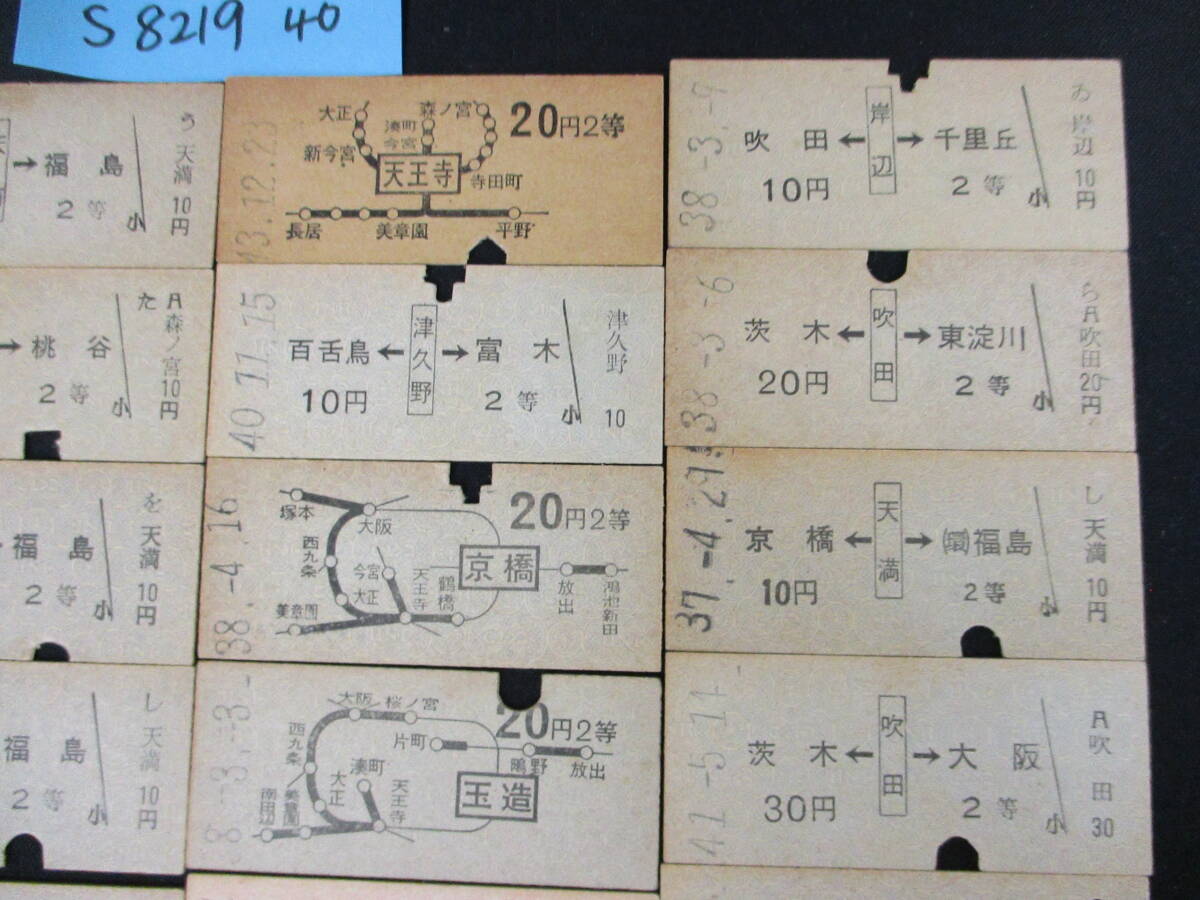 S 8219 40
→ 福島
2等
小
う
天満
10円
→ 桃谷
2等
小
た
A
森ノ宮
10円
福島
2等
小
を
天満
10円
福島
2等
小
し
天満
10円
43.12.23
大正
森ノ宮
湊町
今宮
新今宮
天王寺
寺田町
20円2等
長居
美章園
平野
40.11.15
百舌鳥 ← 津久野 → 富木
10円
2等
小
津久野
10
38.-4.16
塚本
大阪
20円2等
西九条
今宮
天王寺
鶴橋
京橋
放出
鴻池新田
大正
美章園
8.-3.-3
大阪
桜ノ宮
20円2等
西九条
片町
鴫野
放出
湊町
大正
天王寺
玉造
南田辺
美章園
38.-3.-9
吹田 ← 岸辺 → 千里丘
10円
2等
小
岸辺
10円
38.-3.-6
茨木 ← 吹田 → 東淀川
20円
2等
小
ら
A
吹田
20円
37.-4.29
京橋 ← 天満 → 福島
10円
2等
小
し
天満
10円
41.-5.11
茨木 ← 吹田 → 大阪
30円
2等
小
A
吹田
30